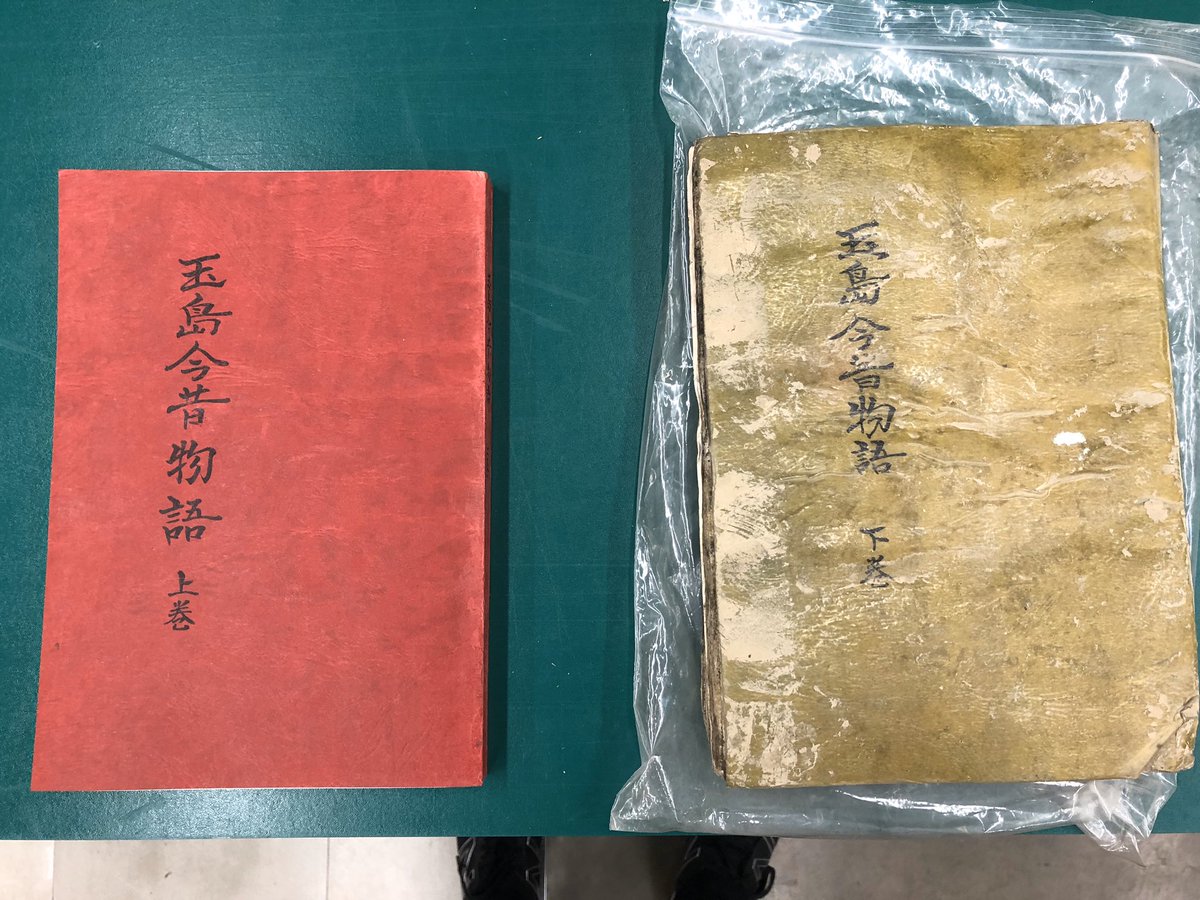 玉島今昔物語 上巻
玉島今昔物語 下巻